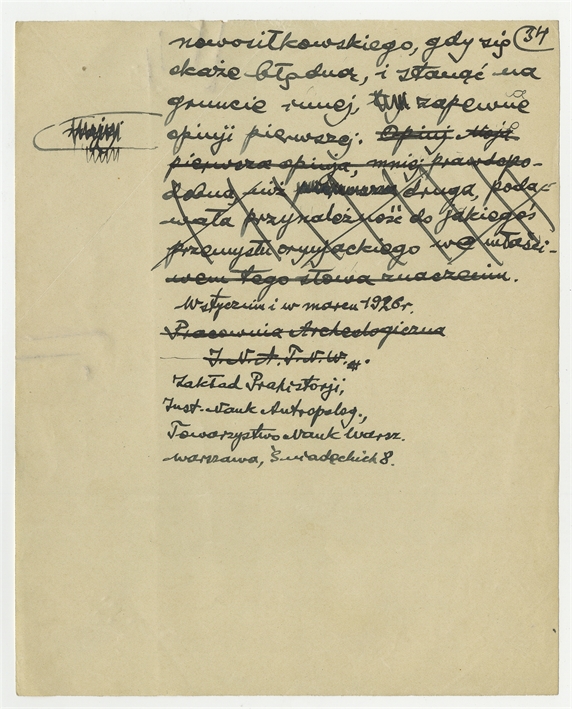 34
nowosiłkowskiego, gdy się
okaże błędną, i stanąć na
gruncie innej, zapewne
opinji pierwszej. Opinj Moja
pierwsza opinja, mniej prawdopo-
dobna, niż druga, poda-
wała przynależność do jakiegoś
przemysłu oryniackiego we właści-
wem tego słowa znaczeniu.
W styczniu i w marcu 1926 r.
Pracownia Archeologiczna
I. N. A. T. N. W.
Zakład Prahistorji,
Inst. Nauk Antropolog.,
Towarzystwo Nauk Warsz.
Warszawa, Śniadeckich 8.